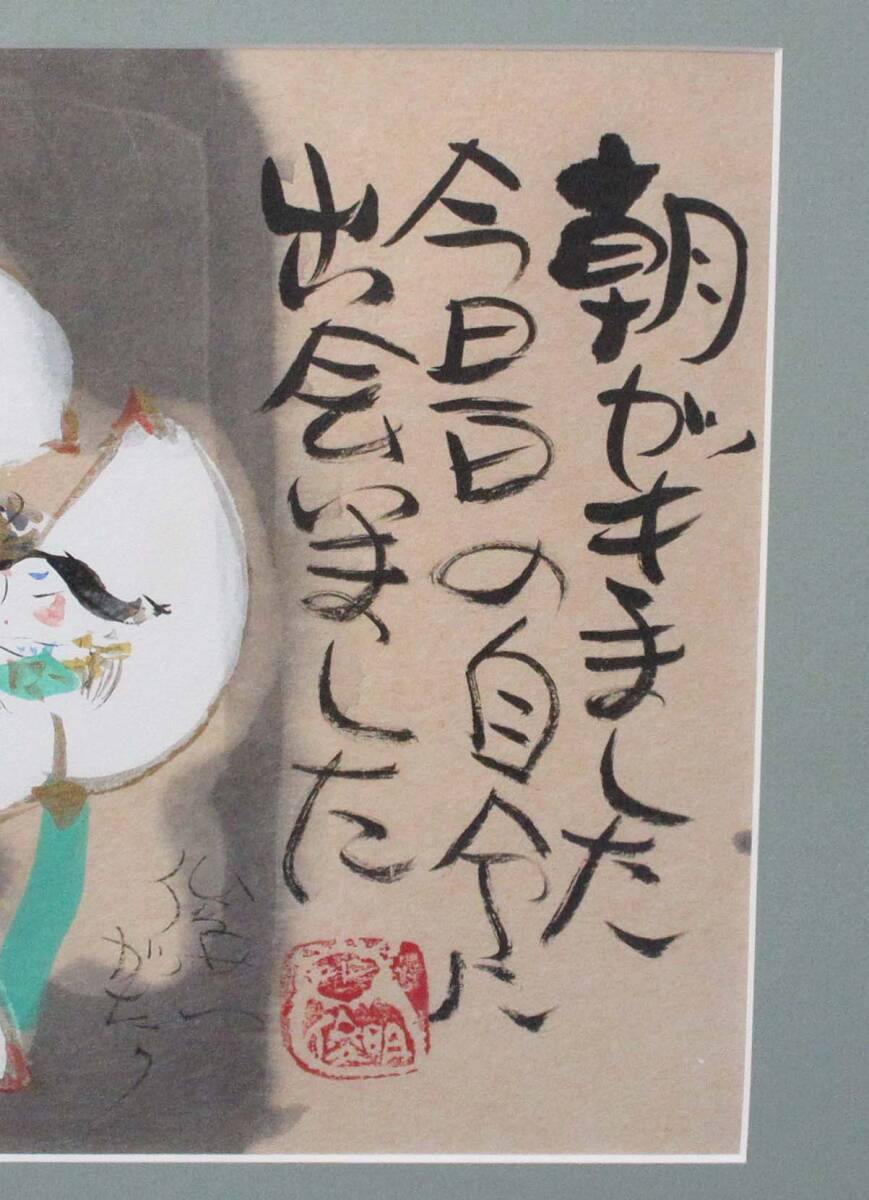 朝がきました
今日の自分に
出会いました